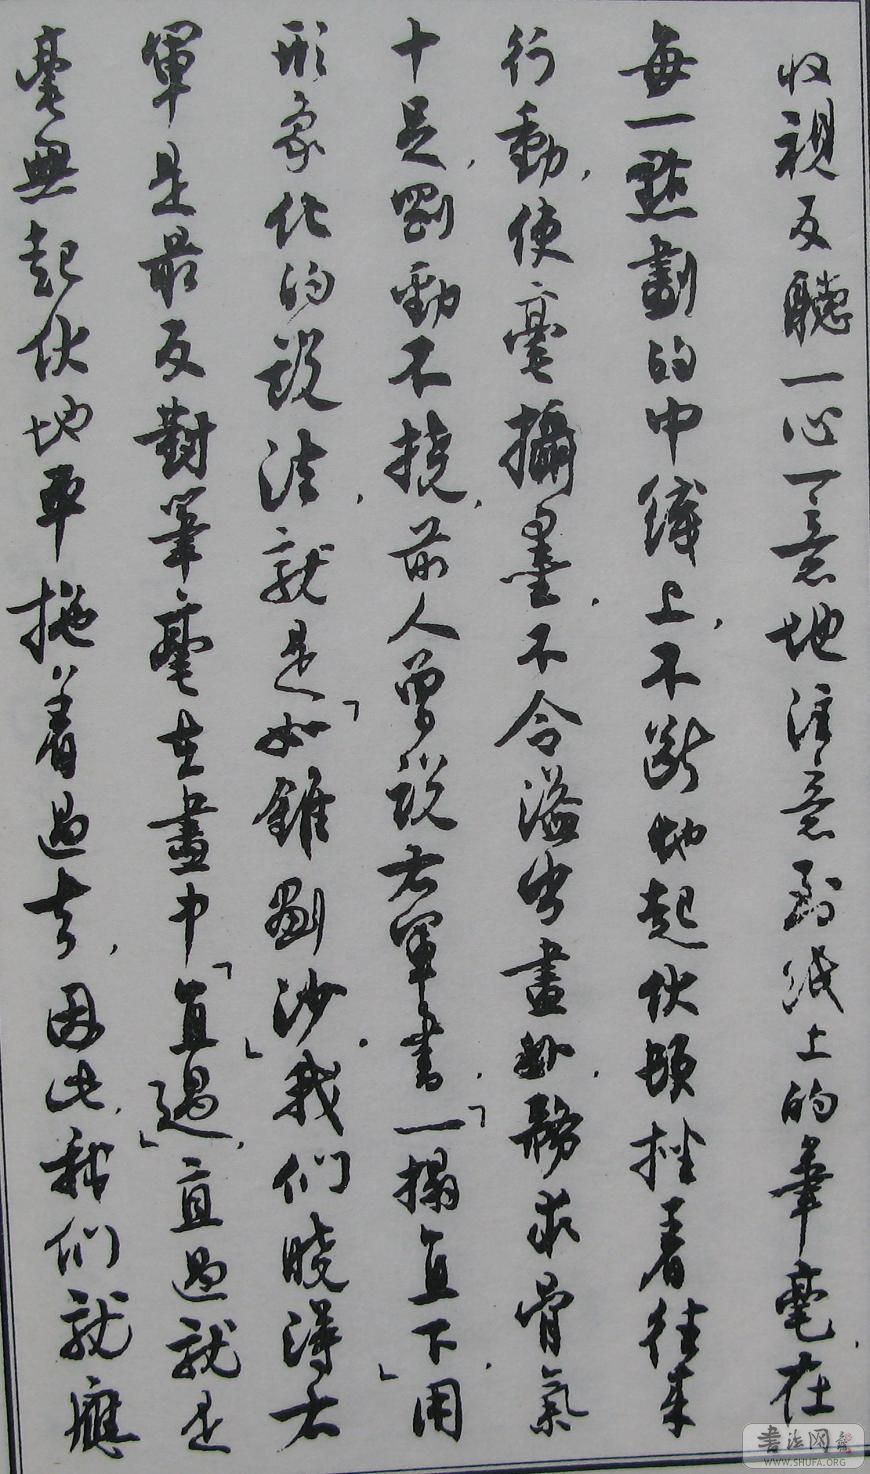 收視反聽一心一意地注意到紙上的筆毫,在
每一點劃的中綫上,不斷地起伏頓挫着往來
行動,使毫攝墨,不令溢出畫外,務求骨氣
十足,剛勁不撓,前人曾説右軍書,「一搨直下」,用
形象化的説法,就是「如錐劃沙」.我們曉得右
軍是最反對筆毫在畫中「直過」,直過就是
毫無起伏地平拖着過去,因此,我們就應
書法网
WWW.SHUFA.ORG